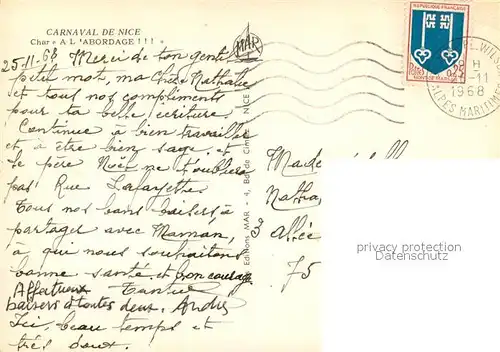 CARNAVAL DE NICE
Char « A L'ABORDAGE !!! »
MAR
25-11-68 Merci de ton gentil
petit mot, ma Chère Nathalie
et tous nos compliments
pour ta belle écriture.
Continue à bien travailler
et à être bien sage. et
le père Noël ne t'oubliera
pas Rue Lafayette.
Tous nos bons baisers à
partager avec Maman,
à qui nous souhaitons
bonne santé et bon courage
Affectueux Tantine
baisers à toutes deux. André
Ici, beau temps et
très doux.
Editions MAR - 4, Bd de Cimiez NICE
REPUBLIQUE FRANÇAISE
MONT-DE-MARSAN
POSTES
H
-11
1968
ALPES MARITIMES
Made
Natha
3 allée
75
privacy protection
Datenschutz